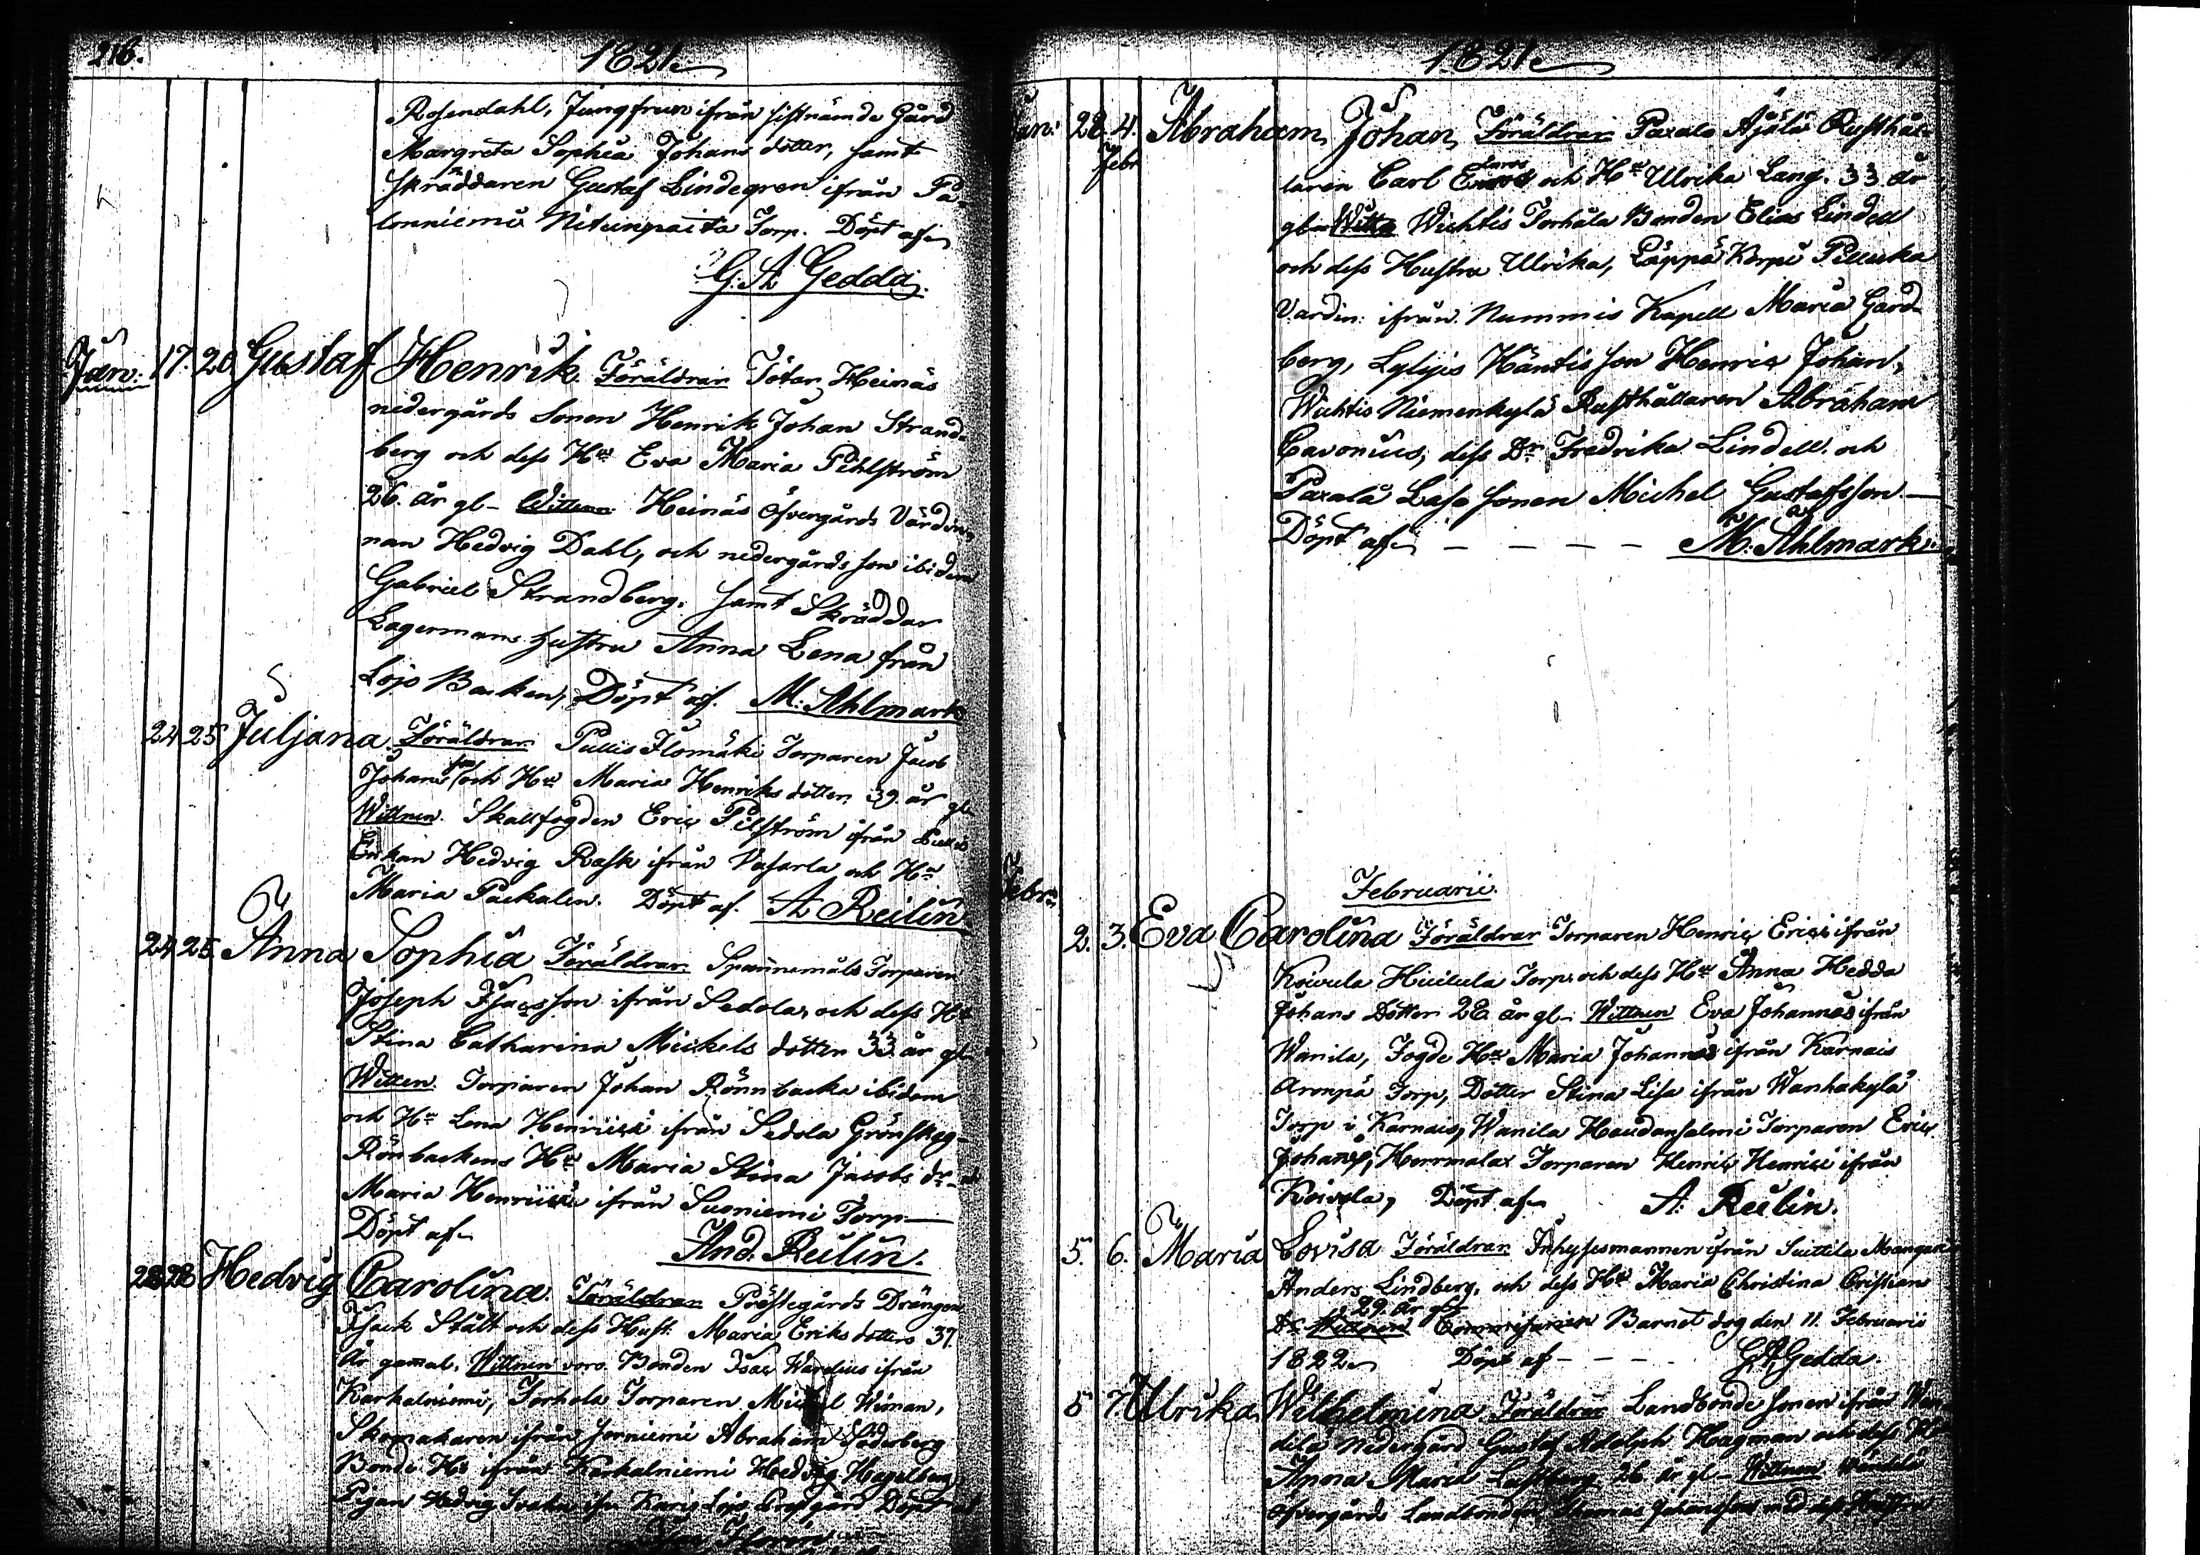 216.
1821.
Rosendahl, Jungfrun ifrån sistnämde Gård
Margreta Sophia Johans dotter, samt
skräddaren Gustaf Lindegren ifrån Pa-
lonniemi Torp. Döpt af
G. A. Gedda.
Jan: 17. 20 Gustaf Henrik. Föräldrar Heinäs
nedergårds Sonen Henrik Johan Strand-
berg och dess Hu Eva Maria Pihlström
26. år gl- Wittnen Heinäs öfvergårds Värdin-
nan Hedvig Dahl, och nedergårds son ibidem
Gabriel Strandberg. samt Skräddar
Lagermans hustru Anna Lena från
Lojo Backen, Döpt af. M: Ahlmark
24 25 Juljana. Föräldrar Pullis Ilomäki Torparen Jacob
Johans son och Hu Maria Henriks dotter 39. år gl-
Wittnen. Skallfogden Eric Pilström ifrån Pullis
Enkan Hedvig Rask ifrån Vasarla och Hu
Maria Packalen. Döpt af. A Reilin.
24 25. Anna Sophia Föräldrar Torparen
Joseph Isacsson ifrån Sedola, och dess Hu
Stina Catharina Mickels dotter 33. år gl-
Witten. Torparen Johan Rönnbacka ibidem
och Hu Lena ifrån Sedola
Rönbackens Hu Maria Stina Jacobs dr
Maria ifrån Suoniemi Torp
Döpt af And. Reilin.
28 28 Hedvig Carolina. Föräldrar Prästegårds Drängen
Isack Stålt och dess Hust: Maria Eriks dotter 37.
år gamal. Wittnen voro Bonden Isac Wardius ifrån
Karkalniemi, Torhola Torparen Michel Wiman,
Skomakaren ifrån Abraham Söderberg
Bonde Hu ifrån Karkalniemi Hedvig Hagelberg
Pigan Hedvig Karis Lojo Prestgård Döpt af
1821
Jan: 28 4. Febr Abraham Johan, Föräldrar Paxalo Ajälä Rusthål-
laren Carl Ericss och Hu Ulrika Lang. 33. år
gl- Wittn Wichtis Torhola Bonden Elias Lindell
och dess Hustru Ulrika,
Värdin: ifrån Nummis Kapell Maria Gard-
berg, Lylyis Häntis son Henric Johan,
Wichtis Niemenkylä Rusthållaren Abraham
Cavonius, dess Dr Fredrika Lindell. och
Paxala Lasa sonen Michel Gustafsson.
Döpt af - - - - - M: Ahlmark
Februarii.
Febr: 2. 3. Eva Carolina Föräldrar Torparen Henric Erici ifrån
Torp, och dess Hu Anna Hedda
Johans Dotter 28 år gl- Wittnen Eva Johans ifrån
Wanila, Fogde Hu Maria Johans ifrån Karnais
Torp, Dotter Stina Lisa ifrån Wanhakylä
Torp i Karnais, Wanila Haudansalmi Torparen Eric
Johans, Hermala Torparen Henric Henrici ifrån
Koisola, Döpt af A: Reilin.
5. 6. Maria Lovisa Föräldrar Inhysesmannen ifrån Suittila
Anders Lindberg, och dess Hu Maria Christina Cristians
Dr 29. år gl Wittnen Barnet dog den 11. Februarii
1822. Döpt af - - - - G A Gedda.
5 7. Ulrika Wilhelmina Föräldrar Landbonde sonen ifrån
nedergård Gustaf Adolph Hagman och dess Hu
Anna Maria 26 år gl- Wittnen
öfvergårds Landbonden